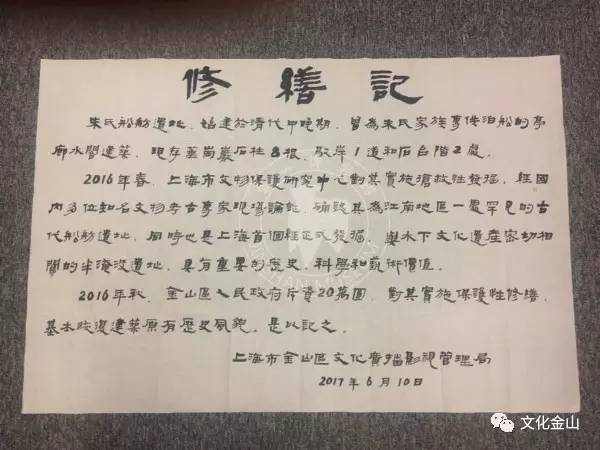 修繕記
朱氏船舫遺址,始建於清代中晚期,曾為朱氏家族專供泊船的亭
廊水閣建築,現存花崗巖石柱8根,駁岸1道和石台階2處。
2016年春,上海市文物保護研究中心對其實施搶救性發掘,經國
內多位知名文物考古專家現場論証,確認其為江南地區一處罕見的古
代船舫遺址,同時也是上海首個經正式發掘,與水下文化遺產密切相
關的半淹没遺址,具有重要的歷史、科學和藝術價值。
2016年秋,金山區人民政府斥資20萬圓,對其實施保護性修繕,
基本恢復建築原有歷史風貌。是以記之。
上海市金山區文化廣播影視管理局
2017年6月10日
文化金山